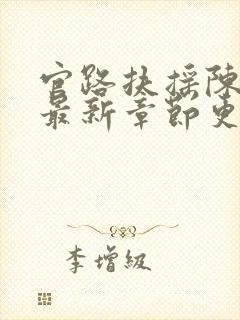 官路扶摇陈
最新章节更
李增級